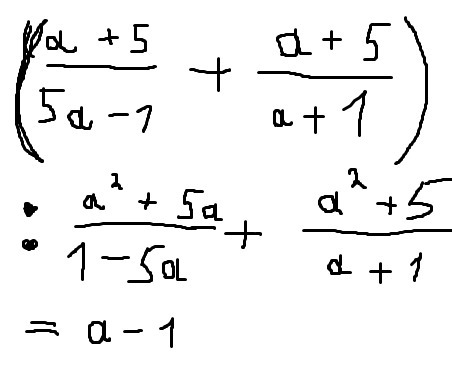 (a + 5 / 5a - 1 + a + 5 / a + 1)
: a² + 5a / 1 - 5a + a² + 5 / a + 1
= a - 1